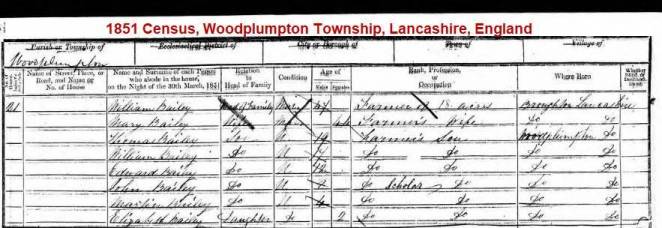 1851 Census, Woodplumpton Township, Lancashire, England
Parish or Township of Ecclesiastical District of City or Borough of Town of Village of
Woodplumpton
Name of Street, Place, or Road, and Name or No. of House
Name and Surname of each Person who abode in the house, on the Night of the 30th March, 1851
Relation to Head of Family
Condition
Age of
Males Females
Rank, Profession, or Occupation
Where Born
William Bailey Head of Family Mar 47 Farmer 18 acres Broughton Lancashire
Mary Bailey Wife Mar Farmer's Wife Do Do
Thomas Bailey Son U 19 Farmer's Son Woodplumpton Do
William Bailey Do U Do Do Do Do
Edward Bailey Do U 12 Do Do Do Do
John Bailey Do U Do Scholar Do Do Do
Bailey Do U Do Do Do Do
Elizabeth Bailey Daughter Do 2 Do Do Do Do